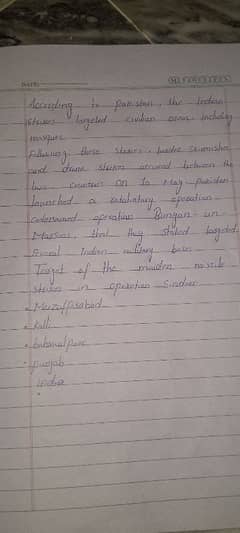 According to pakistan, the Indian
strikes targeted civilian areas, including
mosques.
Following these strikes, border skirmishes
and drone strikes occurred between the
two countries on 10 May pakistan
launched a retaliatory operation
codenamed operation Bunyan un
Marsus, that they stated targeted
several Indian military bases.
Target of the missile
strikes in operation Sindoor
• Muzaffarabad
• Kotli
• bahawalpur
• punjab
India
•